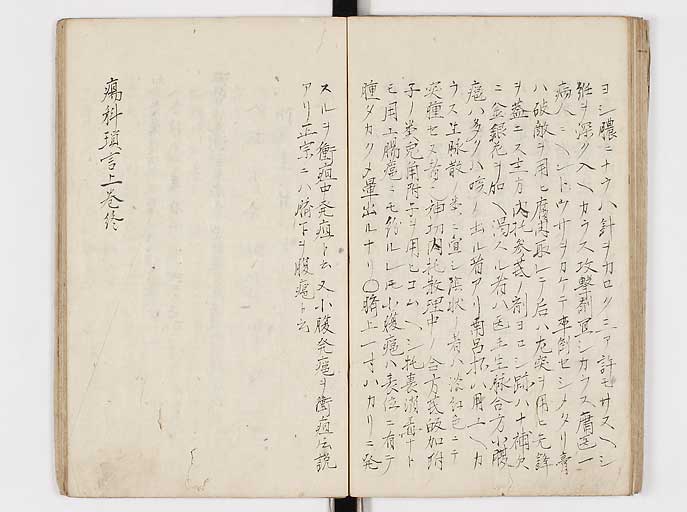 ヨシ膿ニナラハ針ヲカロク三ア許モサスヘシ
ヲ深ク入ヘカラス攻撃剤宜シカラス庸医一
病人ニヘシトウサヲカケテ卒倒セシメタリ膏
ハ破敵ヲ用ヒ腐肉取レテ后ハ左突ヲ用ヒ先鋒
ヲ蓋ニス主方内托参芪ノ剤ヨロシ跡ハ十補欠
ニ金銀花ヲ加ヘ渇スル者ハ医王生脉合方小腹
癰ハ多クハ咳ノ出ル者アリ南呂拆ハ用ユヘカ
ラス生脉散ノ類ニ宜シ陰状ノ者ハ淡紅色ニテ
焮種セス者ニ神功内托散理中ノ合方芪畋加附
子ノ類兎角附子ヲ用ヒコムヘシ托裏消毒ナト
モ用ユ腸癰ニモ紛ルレトモ小腹癰ハ表位ニ有テ
腫タカクメ暈出ルナリ〇臍上一寸ハカリニ発
スルヲ衝疽中発疽ト云又小腹発疽ヲ衝疽伝説
アリ正宗ニハ臍下ヲ腹癰ト云
瘍科瑣言上巻終